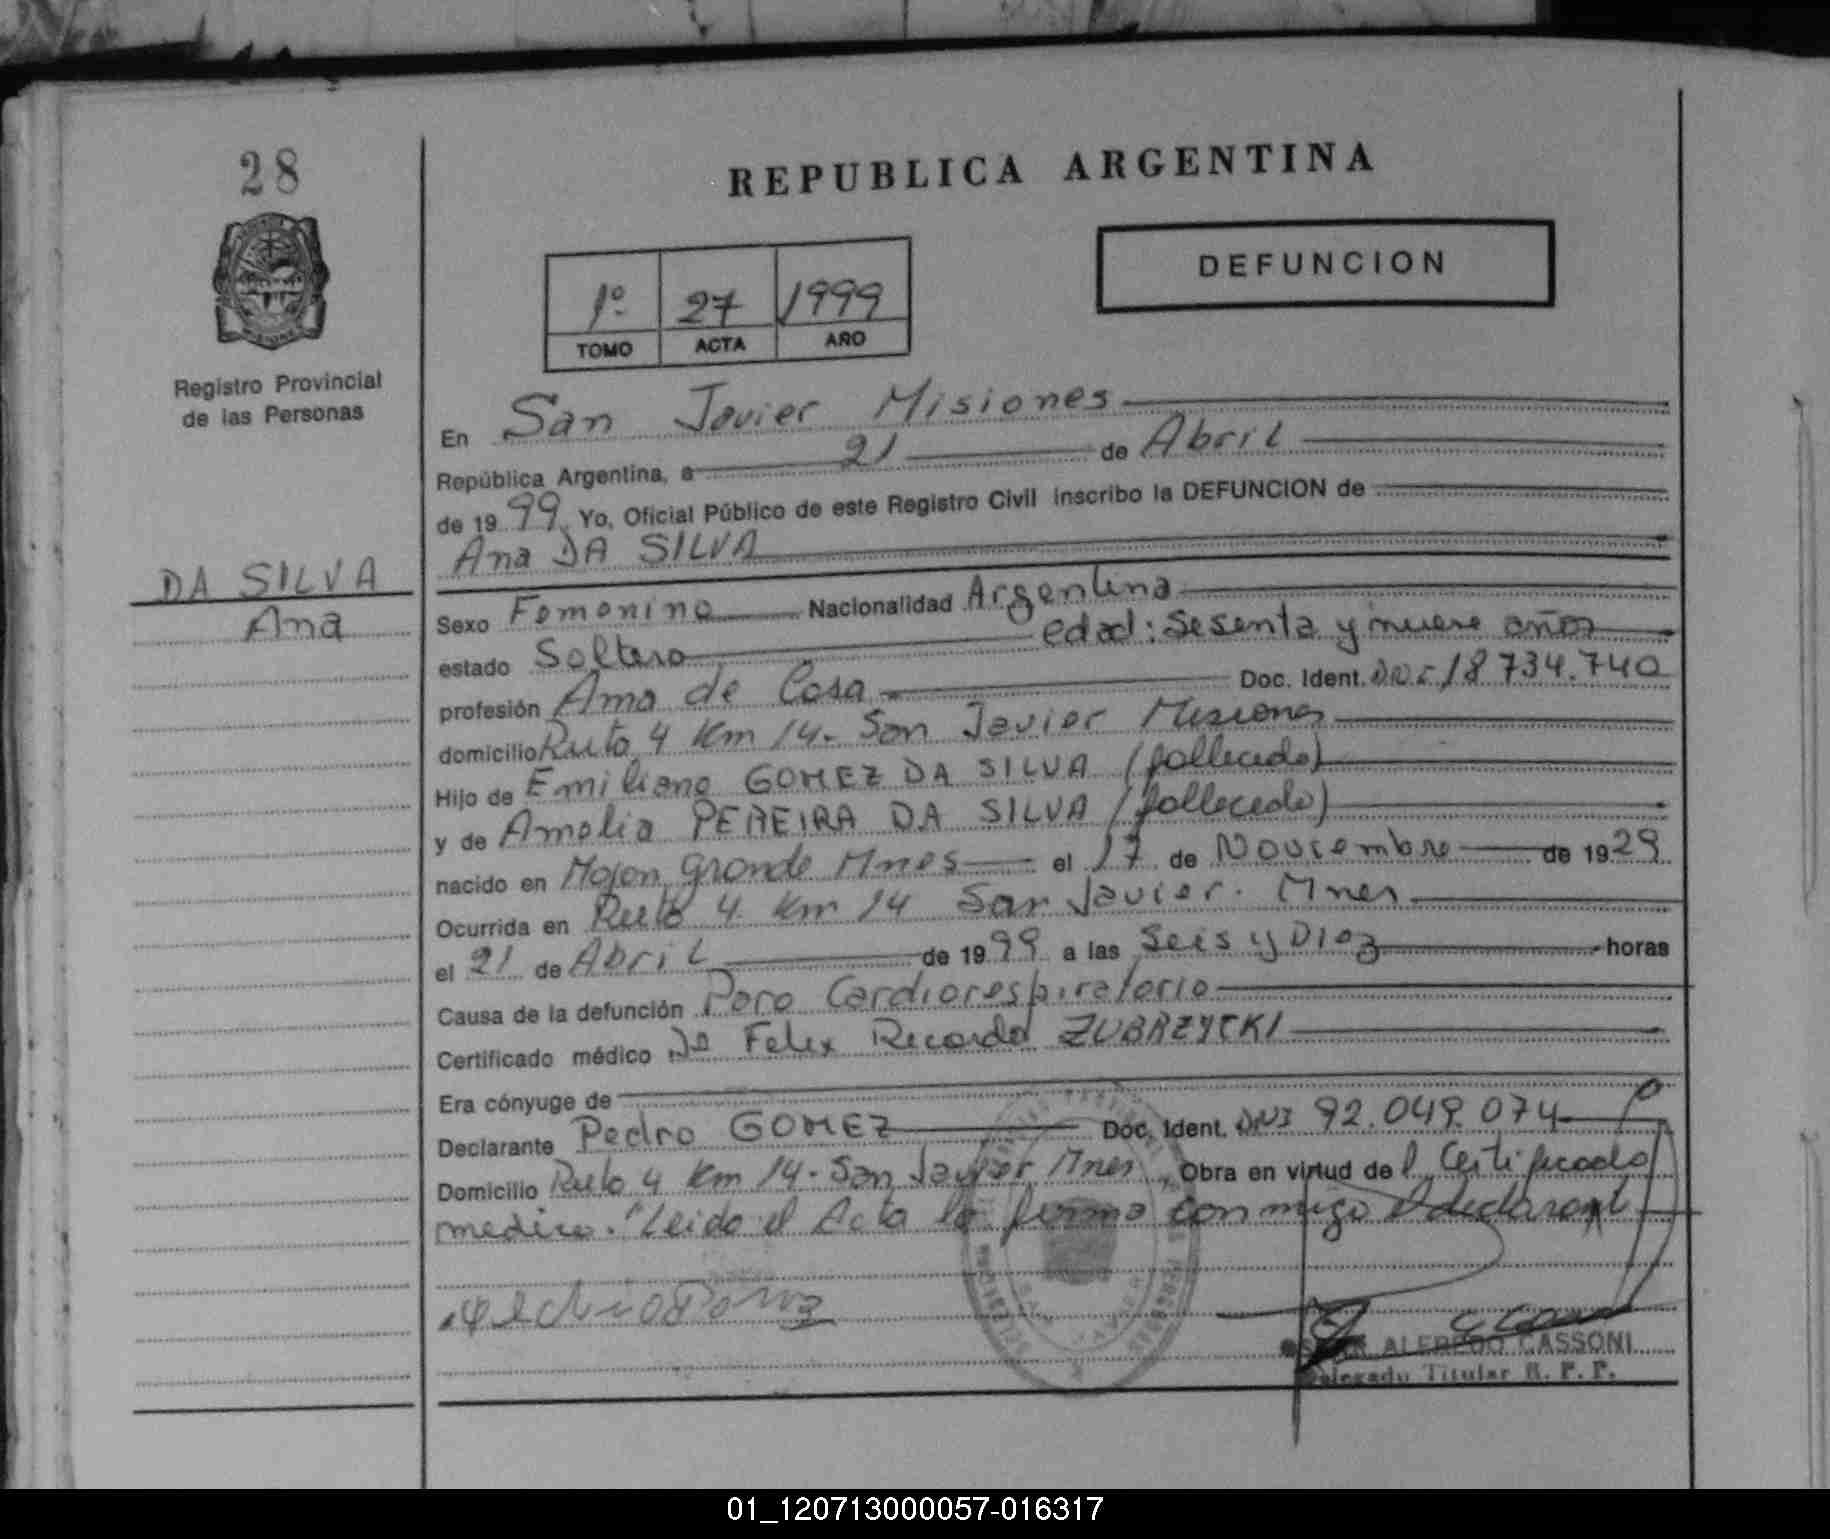 28
REPUBLICA ARGENTINA
DEFUNCION
1º 27 1999
TOMO ACTA AÑO
Registro Provincial
de las Personas
DA SILVA
Ana
En San Javier Misiones
República Argentina, a 21 de Abril
de 1999 Yo, Oficial Público de este Registro Civil inscribo la DEFUNCION de
Ana DA SILVA
Sexo Femenino Nacionalidad Argentina
estado Soltera edad: Sesenta y nueve años
profesión Ama de Casa Doc. Ident. 18.734.740
domicilio Ruta 4 Km 14. San Javier Misiones
Hijo de Emiliano GOMEZ DA SILVA (fallecido)
y de Amalia PEREIRA DA SILVA (fallecida)
nacido en Mojon Grande Mnes el 17 de Noviembre de 1929
Ocurrida en Ruta 4 Km 14 San Javier. Mnes
el 21 de Abril de 1999 a las Seis y Diez horas
Causa de la defunción Paro Cardiorespiratorio
Certificado médico Dr Felix Ricardo ZUBRZYCKI
Era cónyuge de
Declarante Pedro GOMEZ Doc. Ident. DNI 92.049.074
Domicilio Ruta 4 Km 14. San Javier Mnes Obra en virtud del Certificado
medico. Leida el Acta la firma conmigo el declarante
ALFREDO CASSONI
Delegado Titular R. P. P.
01_120713000057-016317